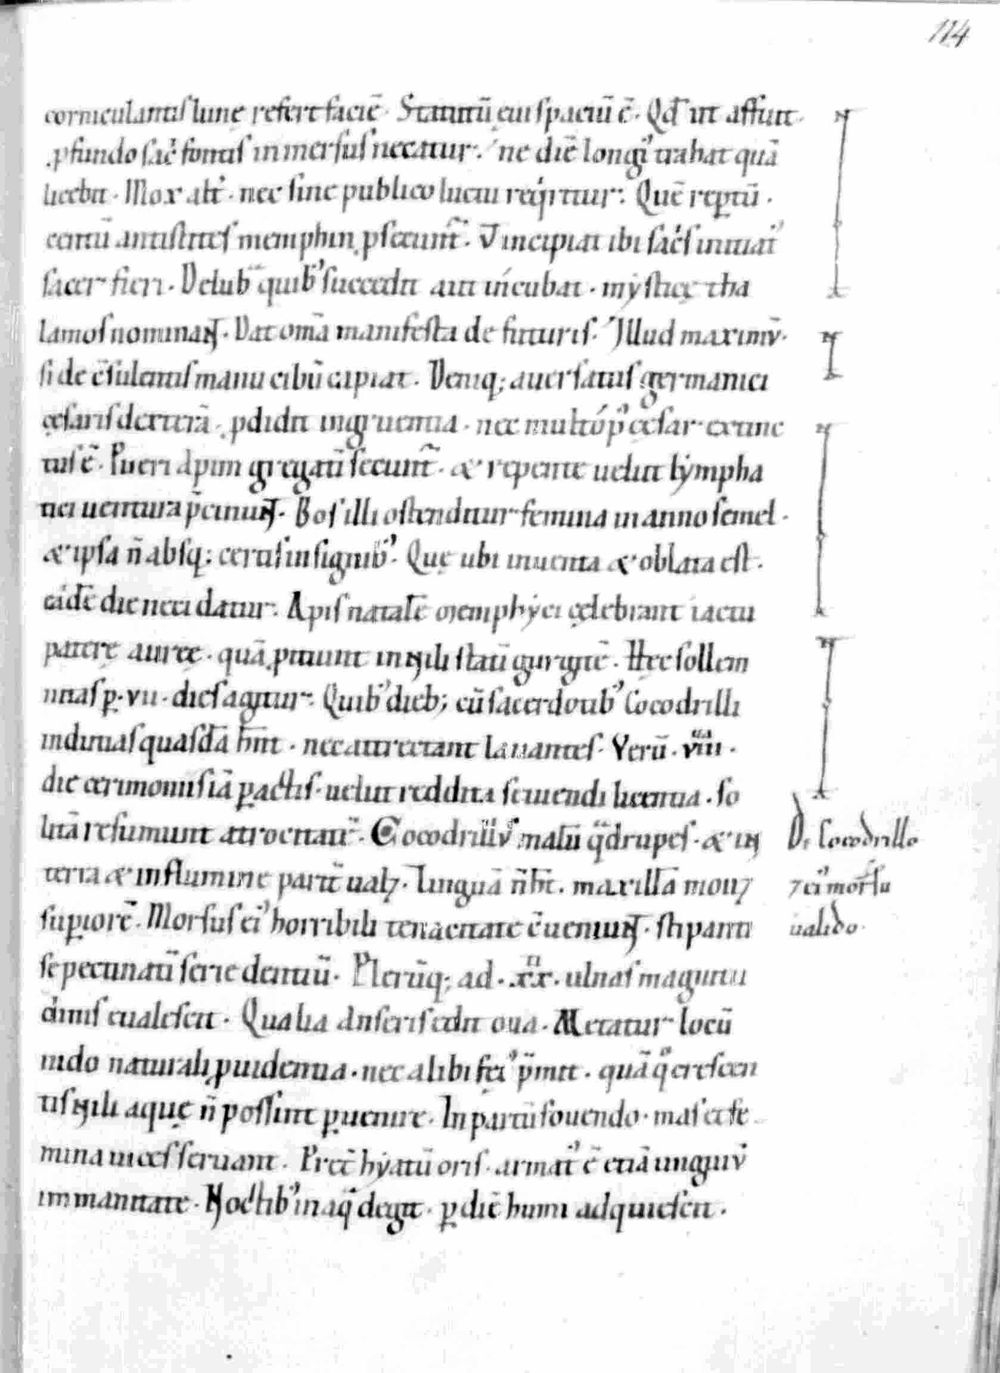 114
corniculantis lunę refert faciē. Statutū eius spaciū ē. Qđ ut affuit.
ꝓfundo sac̄ fontis inmersus necatur. ne diē longi᾽ trahat quā
licebit. Mox alt᾽. nec sine publico luctu req̇ritur. Quē reptū.
centū antistites memphin ꝓsecunt᷑. Vt incipiat ibi sac̄s initiat᾽
sacer fieri. Delubra quib᾽ succedit aut incubat. mysticę tha
lamos nominant. Dat omā manifesta de futuris. Illud maximū.
si de c̄sulentis manu cibū capiat. Deniq; aversatus germanici
cęsaris dexterā. ꝓdidit ingruentia. nec multo p᾽ cęsar extinc
tus ē. Pueri apim gregatī secunt᷑. & repente velut lympha
tici ventura p̄cinunt. Bos illi ostenditur femina in anno semel.
& ipsa n̄ absq; certis insignib᾽. Quę ubi inventa & oblata est.
eādē die neci datur. Apis natalē memphyci celebrant iactu
paterę aureę. quā ꝓiciunt in nili statū gurgitē. Hęc sollem
nitas ꝑ. vii. dies agitur. Quib᾽ dieb; cū sacerdotib᾽ Cocodrilli
inditias quasdā hn̄t. nec attrectant lavantes. Verū. viii.
die cerimoniis iā ꝑactis. velut reddita seviendi licentia. so
litā resumunt atrocitatē. Cocodrillus malū q̄drupes. & in
terra & in flumine parit᷑ valꝫ. Linguā n̄ hꝫ. maxillā movꝫ
supiorē. Morsus ei᾽ horribili tenacitate c̄veniunt. stipanti
se pecinatī serie dentiū. Plerūq; ad. xx. ulnas magnitu
dinis evalescit. Qualia anseris edit ova. Metatur locū
nido naturali ꝓvidentia. nec alibi fet᾽ p̄mit. quā q᾽ crescen
tis nili aquę n̄ possint ꝑvenire. In partū fovendo. mas et fe
mina vices servant. Pret᷑ hyatū oris. armat᾽ ē etiā unguiū
immanitate. Noctib᾽ in aq̄ degit. ꝑ diē humi adquiescit.
De Cocodrillo
⁊ ei᾽ morsu
valido.